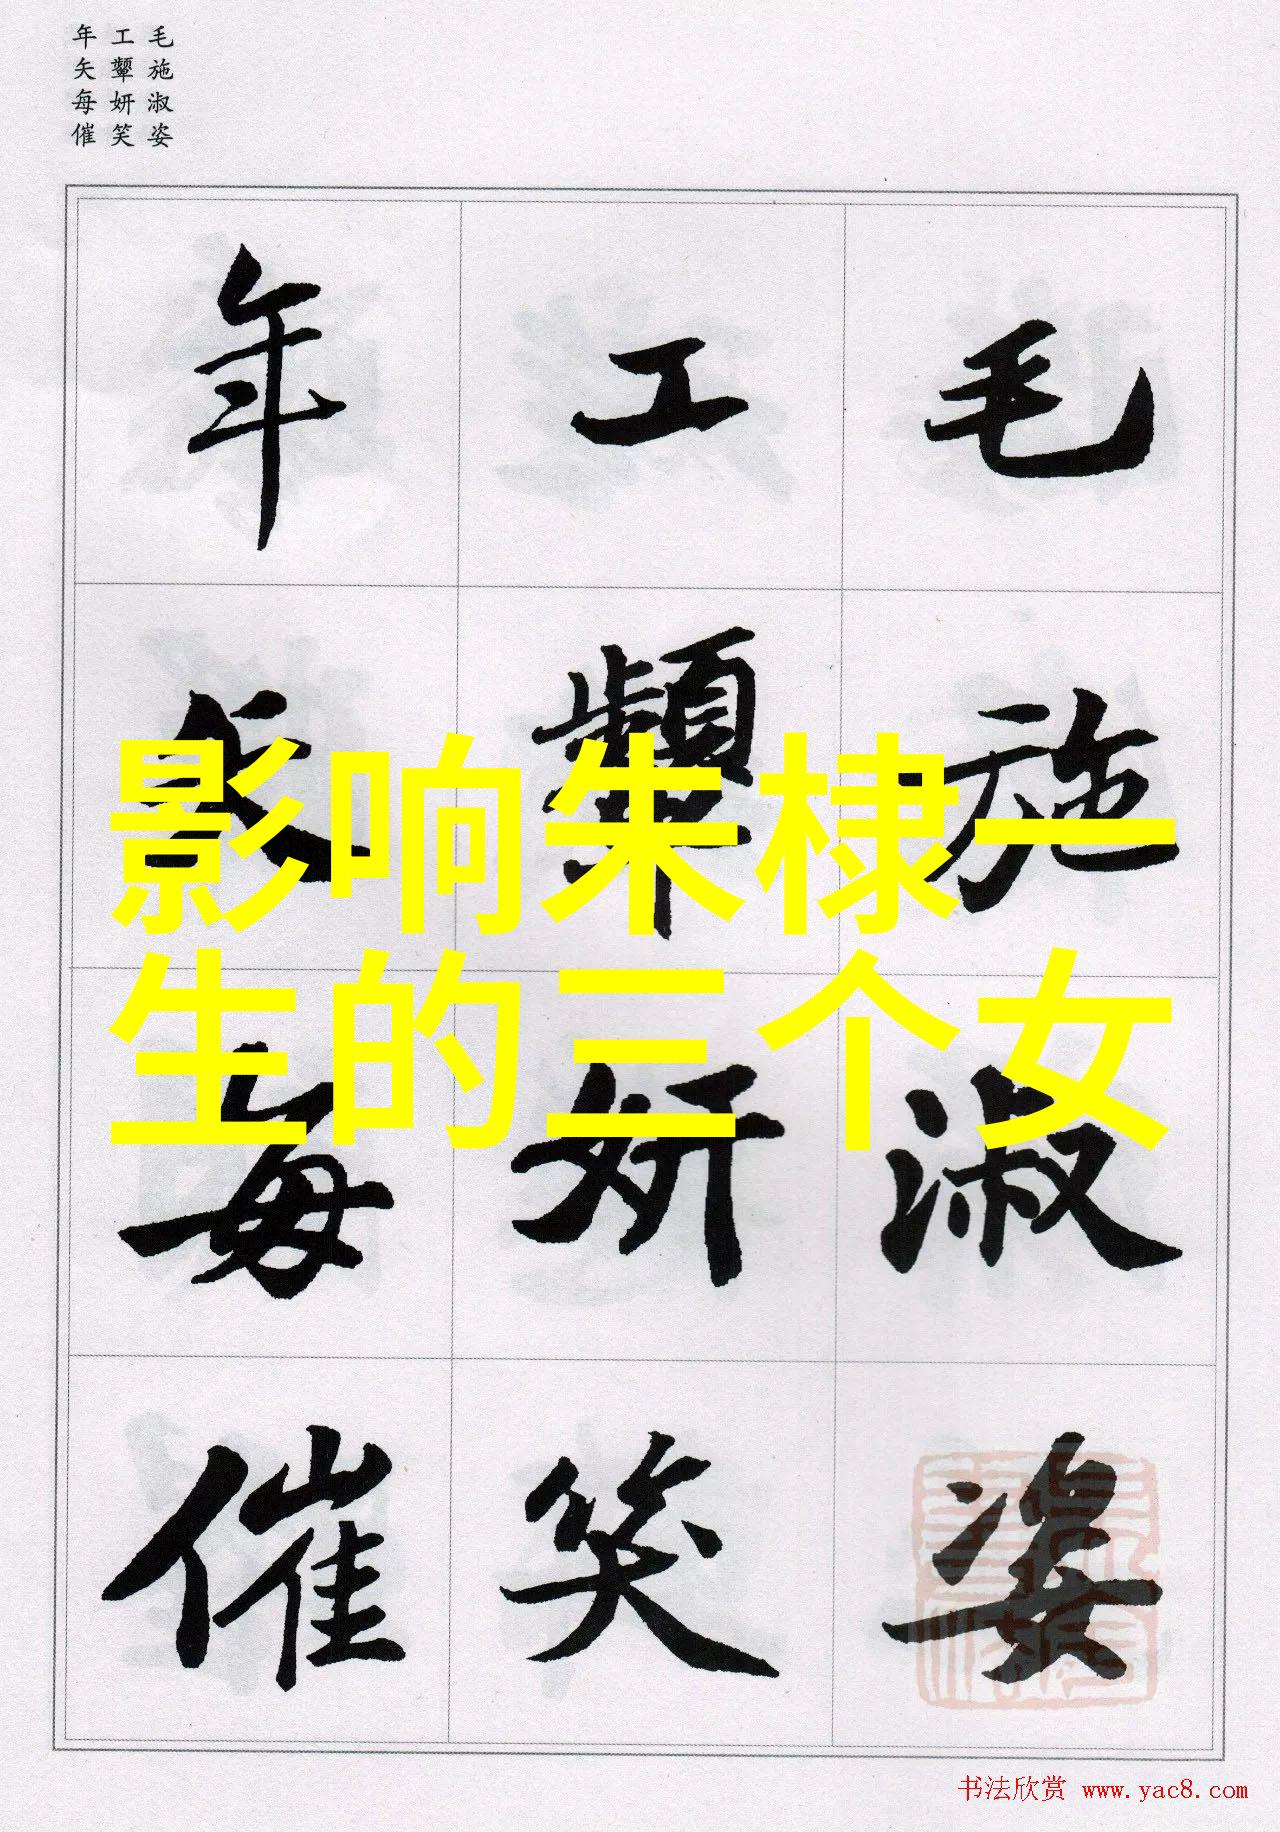 毛施淑姿
工颦妍笑
年矢每催
毛施淑姿
工颦妍笑
年矢每催
影响朱棣一
生的三个女
书法欣赏 www.yac8.com